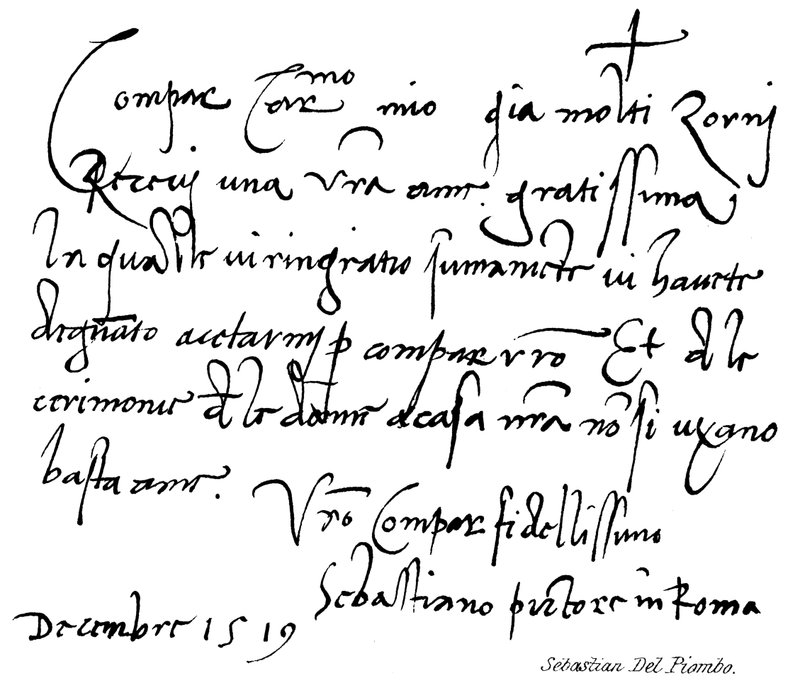 Compar Carmo mio gia molti Zornj
Recevj una vra ame. gratissima
la quale vi ringratio sumamete vi havete
degnato acetarmj p compar vro Et d le
cerimonie d le done a casa nra no si uxano
basta ame.
Vro Compar fidellissimo
Sebastiano pictore in Roma
Decembre 1519
Sebastian Del Piombo.